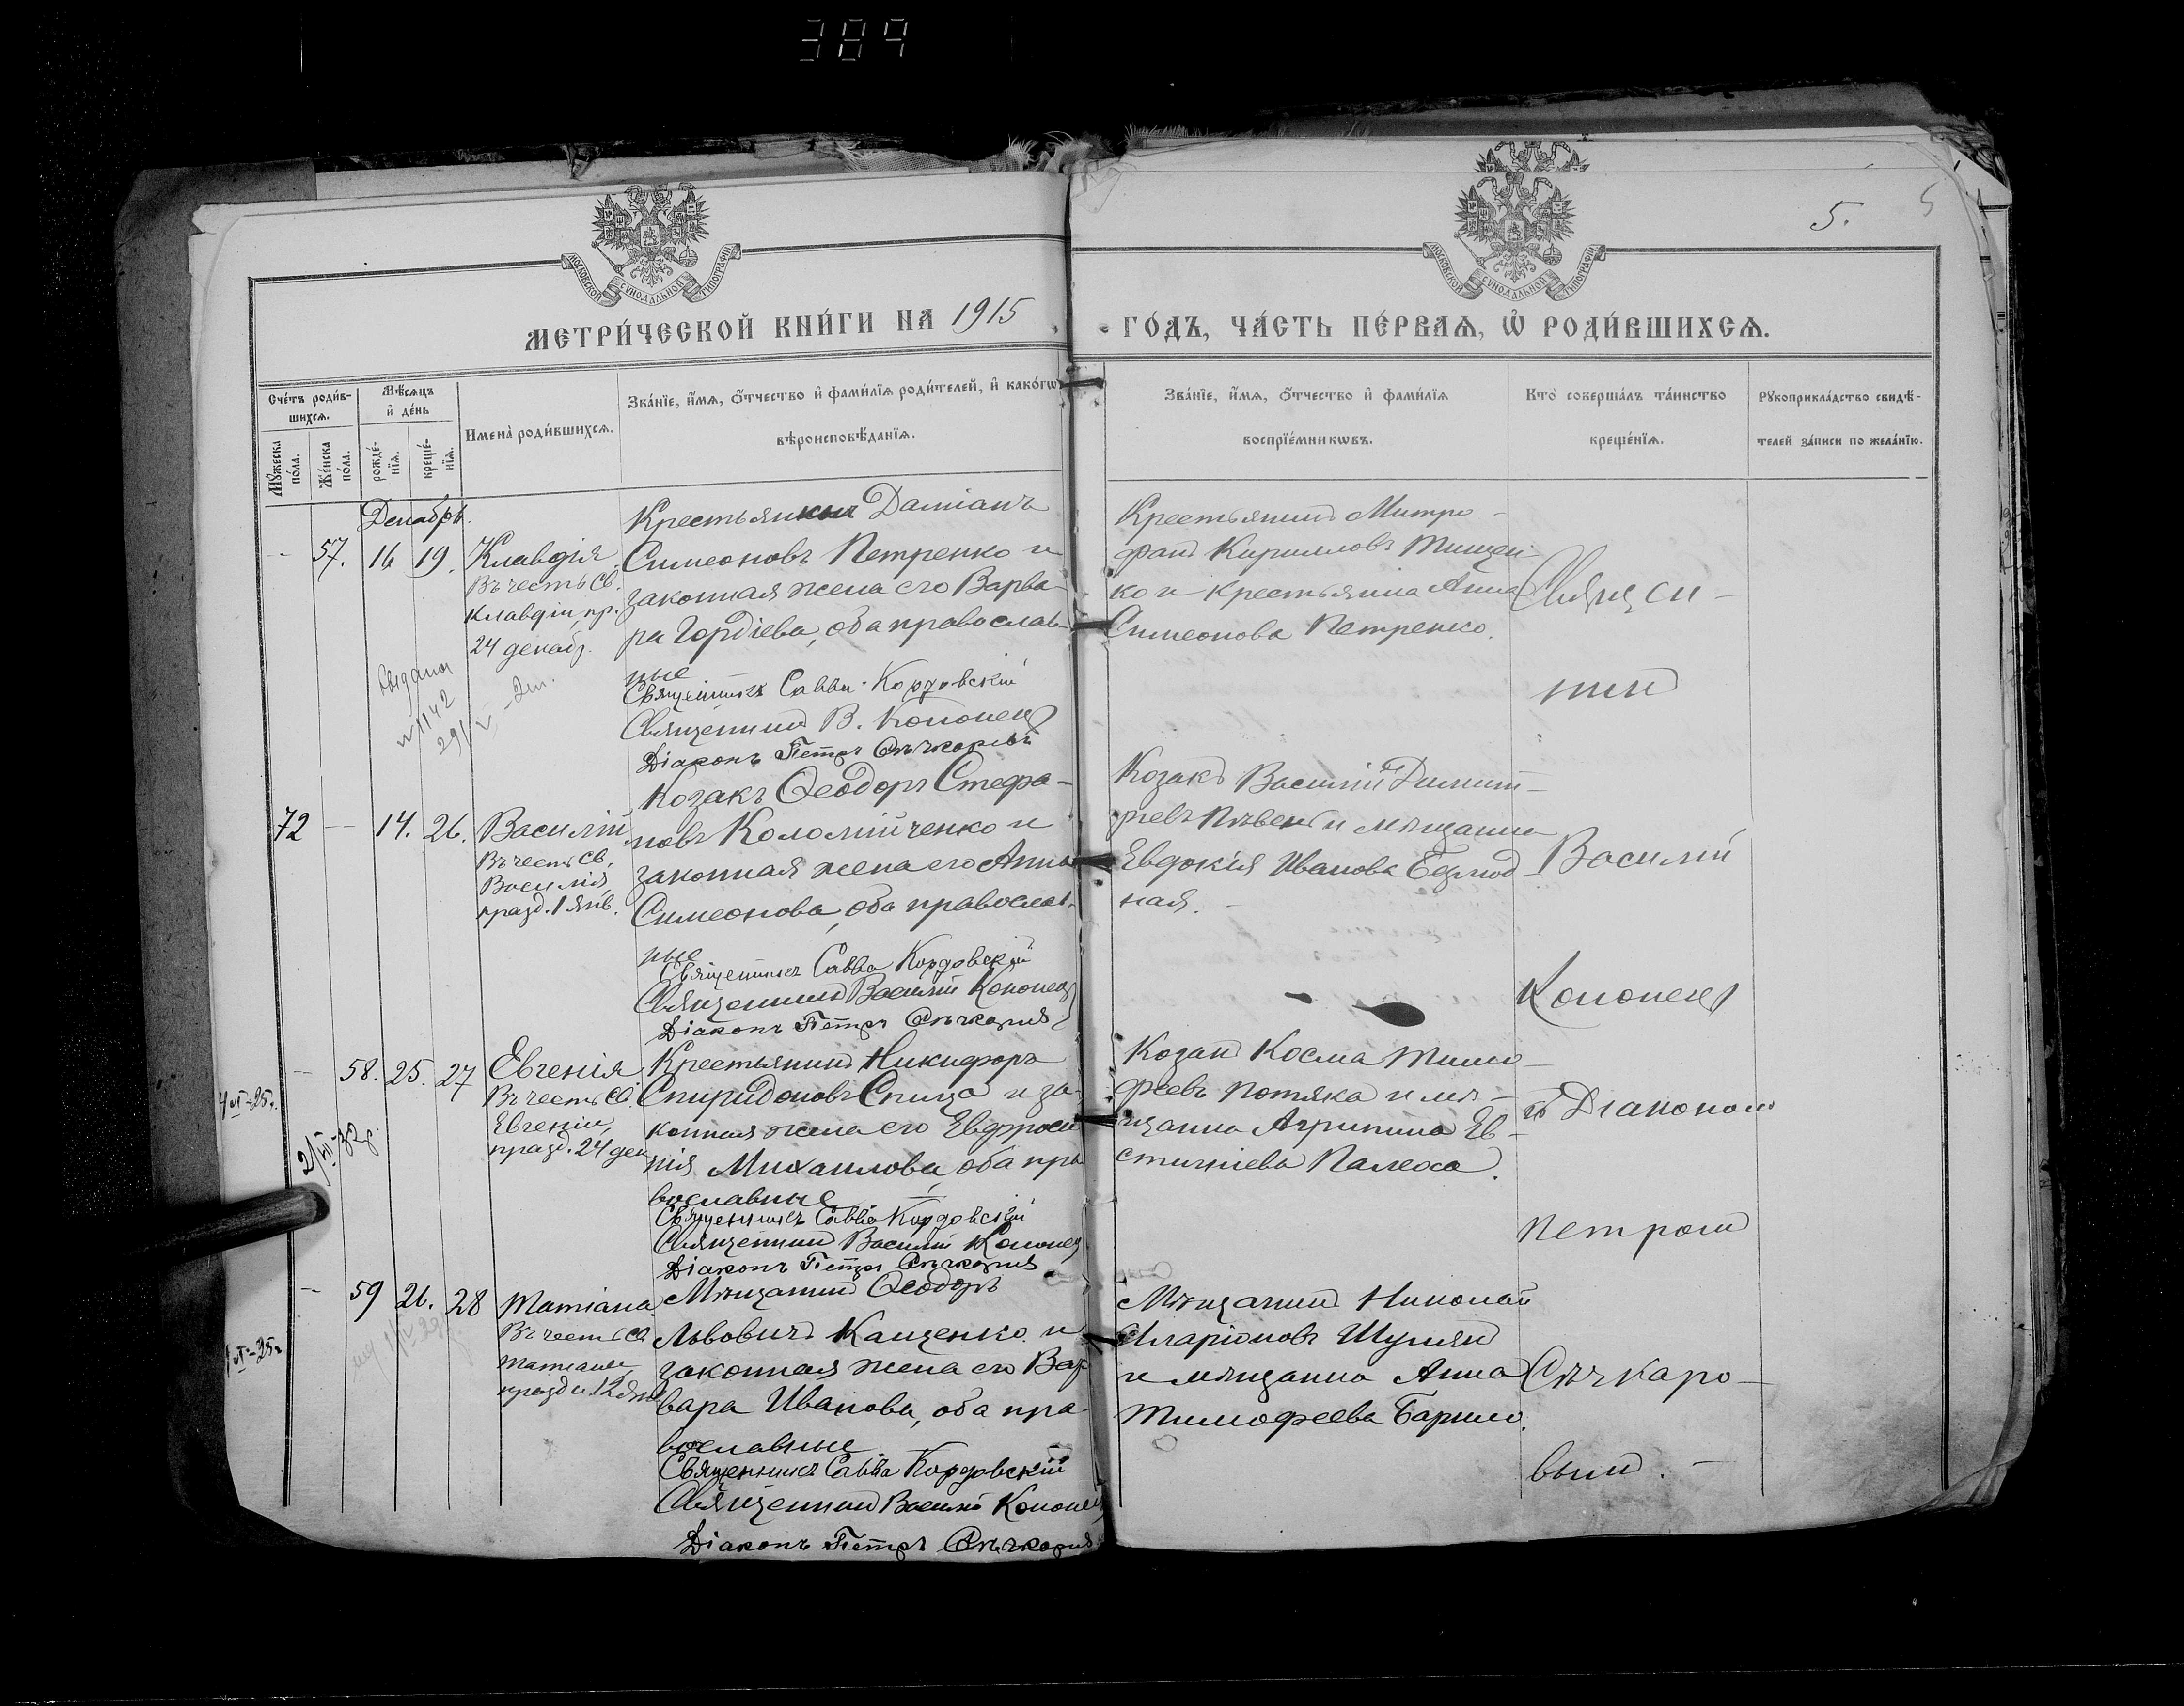 389
5.
5
МОСКОВСКОЙ СѴНОДАЛЬНОЙ ТИПОГРАФІИ
МОСКОВСКОЙ СѴНОДАЛЬНОЙ ТИПОГРАФІИ
МЕТРИ́ЧЕСКОЙ КНИ́ГИ НА 1915
ГО́ДЪ, ЧА́СТЬ ПЕ́РВАѦ, Ѡ҆ РОДИ́ВШИХСѦ.
Сче́тъ роди́в-
шихсѧ.
Мѣ́сѧцъ
и҆ де́нь
Мꙋ́жеска
по́ла.
Же́нска
по́ла.
рожде́-
нїѧ.
креще́-
нїѧ.
Имена̀ роди́вшихсѧ.
Зва́нїе, и҆́мѧ, ѻ҆́тчество и҆ фами́лїѧ роди́телей, и҆ како́гѡ
вѣроисповѣ́данїѧ.
Зва́нїе, и҆́мѧ, ѻ҆́тчество и҆ фами́лїѧ
воспрїе́мникѡвъ.
Кто̀ соверша́лъ та́инство
креще́нїѧ.
Рꙋкоприкла́дство свидѣ́-
телей за́писи по жела́нїю.
Декабрь.
57. 16 19. Клавдія
Въ честь св.
Клавдіи, пр.
24 декабр.
Крестьянинъ Даміанъ
Симеоновъ Петренко и
законная жена его Варва-
ра Гордіева, оба православ-
ные
Священникъ Савва Кордовскій
Священникъ В. Кононецъ
Діаконъ Петръ Сѣчкаревъ
Крестьянинъ Митро-
фанъ Кирилловъ Тищен-
ко и крестьянка Анна
Симеонова Петренко.
Священ-
никъ
выдана
№ 1142
29/V
72 — 14. 26. Василій
Въ честь св.
Василія,
празд. 1 янв.
Козакъ Ѳеодоръ Стефа-
новъ Коломійченко и
законная жена его Анна
Симеонова, оба православ-
ные
Священникъ Савва Кордовскій
Священникъ Василій Кононецъ
Діаконъ Петръ
Козакъ Василій Димит-
ріевъ и мѣщанка
Евдокія Иванова
ная.
Василій
Кононецъ
— 58. 25. 27 Евгенія
Въ честь св.
Евгеніи,
празд. 24 дек
Крестьянинъ Никифоръ
Спиридоновъ Спица и за-
конная жена его Евфроси
нія Михаилова, оба пра
вославные
Священникъ Савва Кордовскій
Священникъ Василій Кононецъ
Діаконъ Петръ
Козакъ Косма Тимо-
феевъ Потяка и мѣ-
щанка Агрипина Ев-
стигніева
съ Діакономъ
Петромъ
— 59 26. 28 Татіана
Въ честь св
Татіаны,
праздн. 12 янв
Мѣщанинъ Ѳеодоръ
Львовичъ Кащенко и
законная жена его Вар
вара Иванова, оба пра-
вославные
Священникъ Савва Кордовскій
Священникъ Василій Кононецъ
Діаконъ Петръ
Мѣщанинъ Николай
Иларіоновъ Шулякъ
и мѣщанка Анна
Тимофеева
Сѣчкаре-
вымъ.